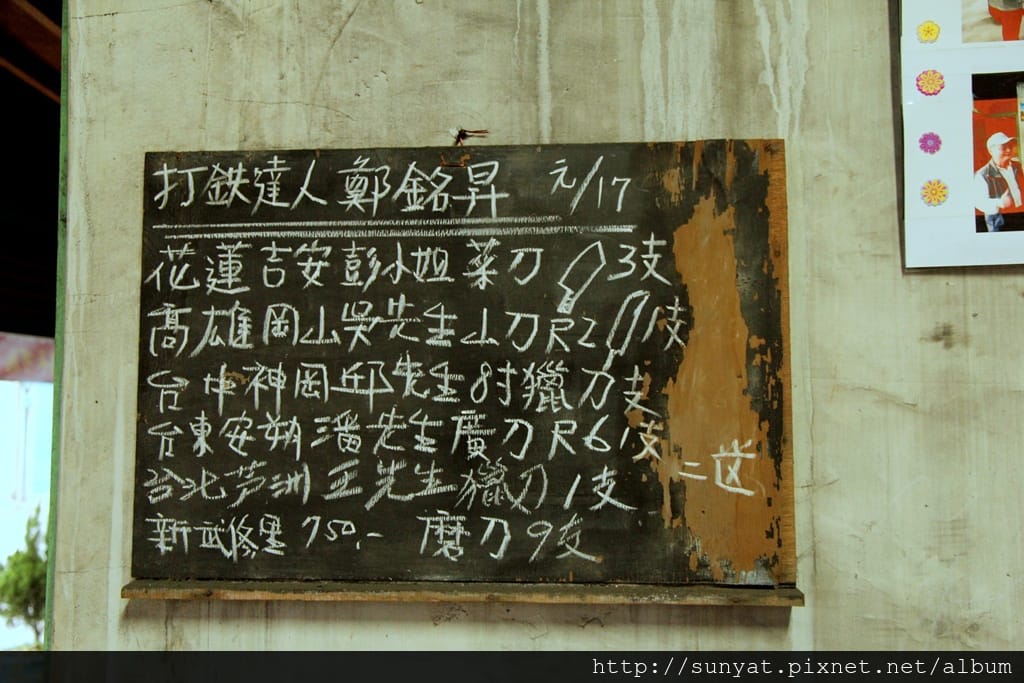 打鉄達人鄭銘昇 元/17
花蓮吉安彭小姐菜刀 3支
高雄岡山吳先生山刀尺2 1支
台中神岡邱先生8吋獵刀支
台東安朔潘先生廣刀尺6 1支
二送
台北芦洲王先生獵刀1支
新武修 750.- 磨刀9支
http://sunyat.pixnet.net/album